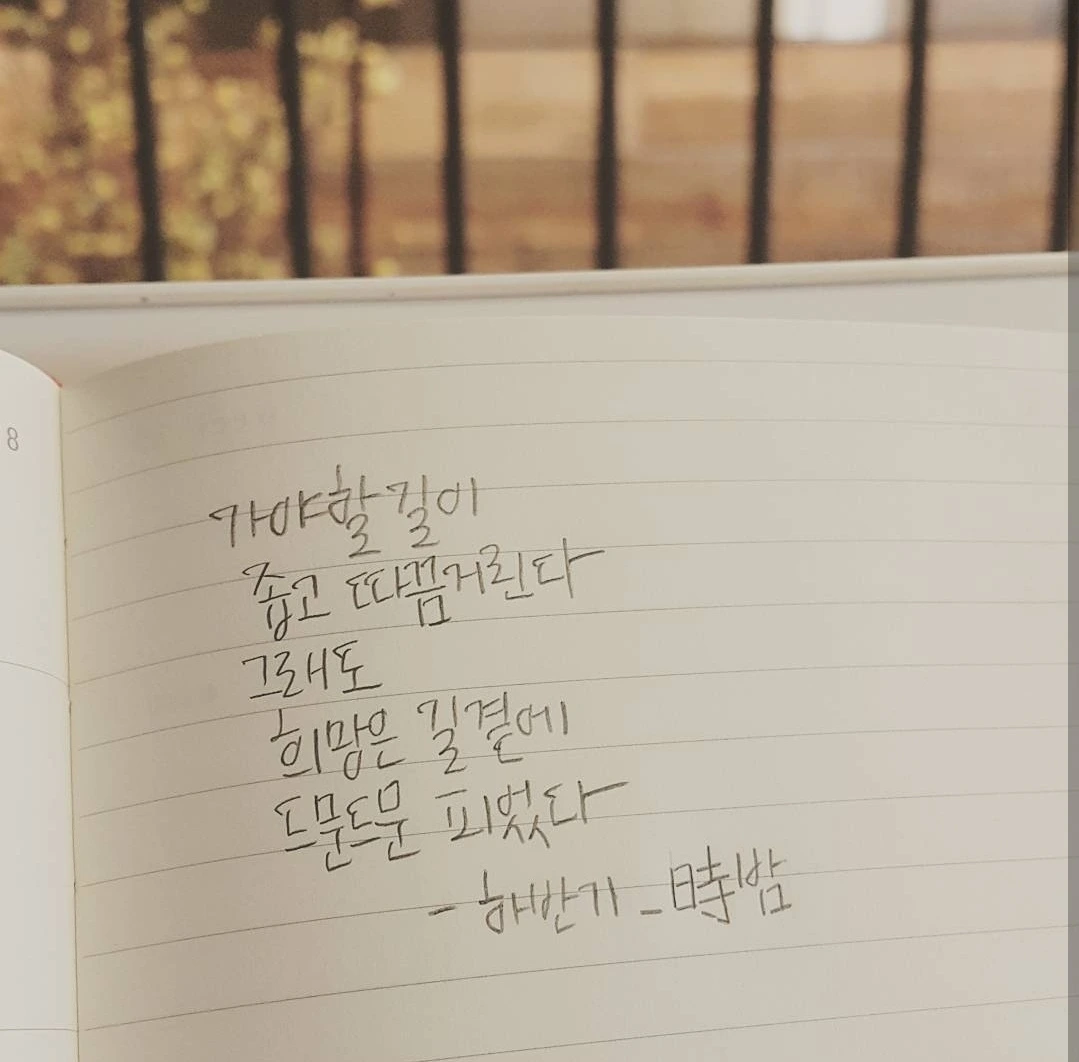 8
가야할 길이
좁고 따끔거린다
그래도
희망은 길곁에
드문드문 피었다
- 해반기 - 時밤